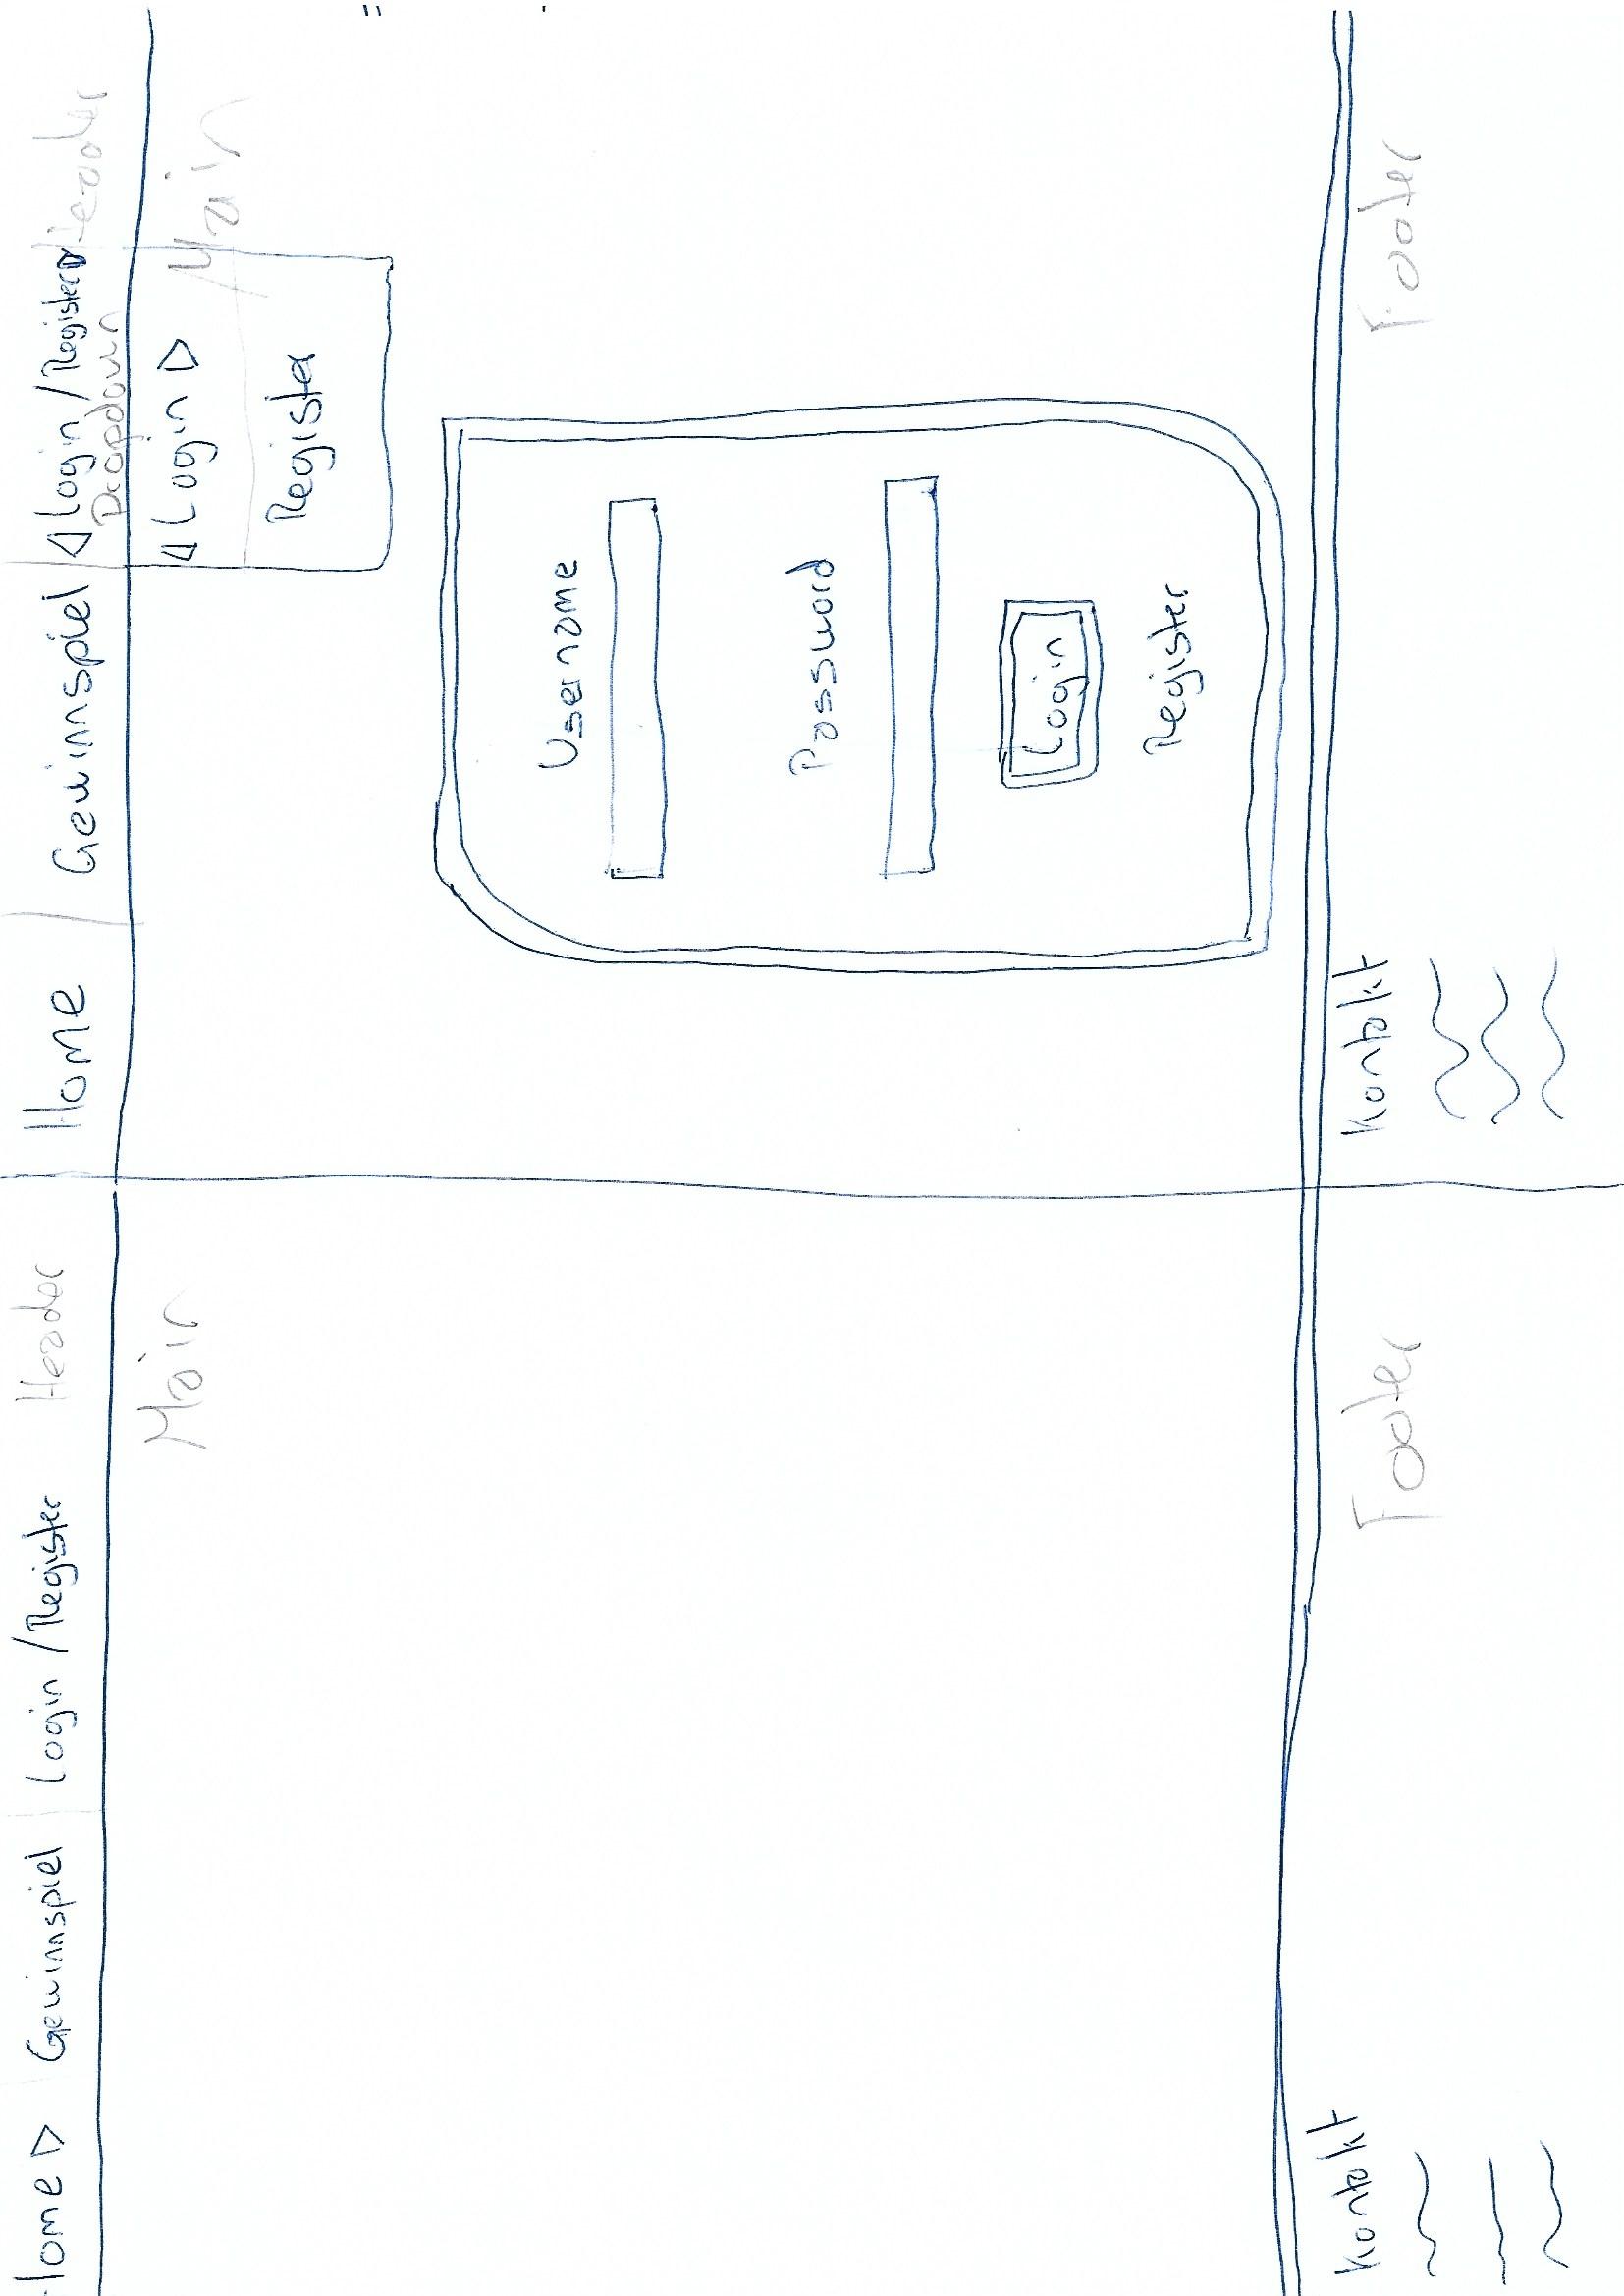 Home Gewinnspiel Login / Register Header
Main
Kontakt
Footer
Home Gewinnspiel Login / Register Header
Dropdown
Login
Main
Register
Username
Password
Login
Register
Kontakt
Footer